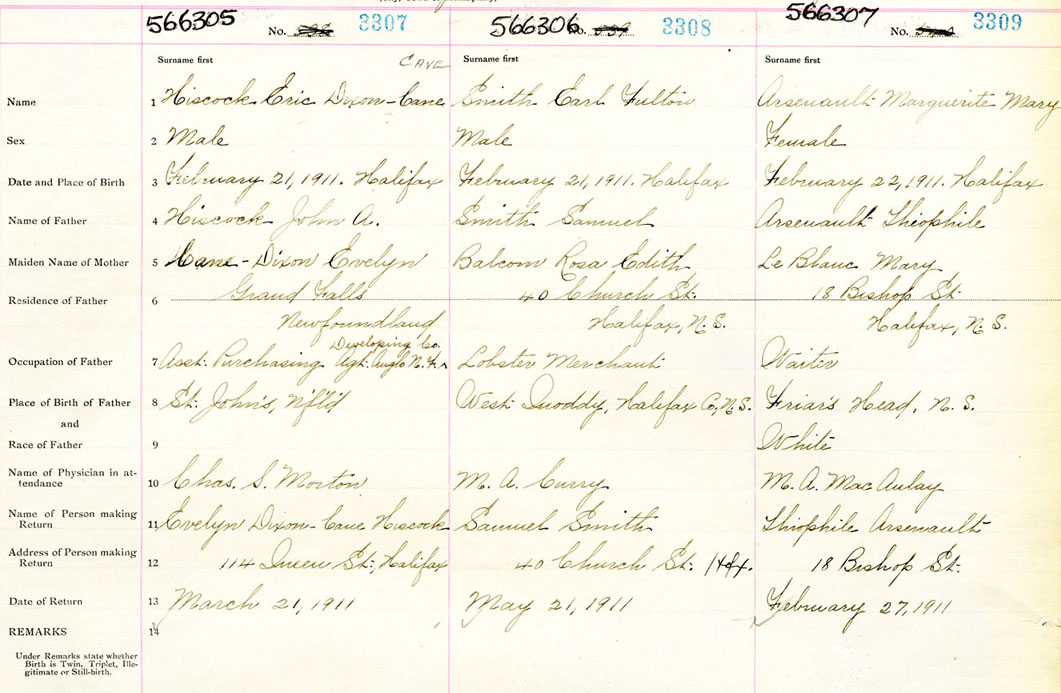 566305 No. 3307 566306 No. 3308 566307 No. 3309
Surname first CAVE Surname first Surname first
Name 1 Hiscock Eric Dixon-Cane Smith Earl Fulton Arsenault Marguerite Mary
Sex 2 Male Male Female
Date and Place of Birth 3 February 21, 1911. Halifax February 21, 1911. Halifax February 22, 1911. Halifax
Name of Father 4 Hiscock John A. Smith Samuel Arsenault Theophile
Maiden Name of Mother 5 Cane-Dixon Evelyn Balcom Rosa Edith Le Blanc Mary
Residence of Father 6 Grand Falls 40 Church St. 18 Bishop St.
Newfoundland Halifax, N.S. Halifax, N.S.
Developing Co.
Occupation of Father 7 Asst. Purchasing Agt. Anglo N.F. Lobster Merchant Waiter
Place of Birth of Father 8 St. John's, Nf'l'd West Quoddy, Halifax Co, N.S. Friar's Head, N.S.
and
Race of Father 9 White
Name of Physician in at-
tendance 10 Chas. S. Morton M. A. Curry M. A. MacAulay
Name of Person making
Return 11 Evelyn Dixon-Cane Hiscock Samuel Smith Theophile Arsenault
Address of Person making
Return 12 114 Queen St., Halifax 40 Church St. Hfx. 18 Bishop St.
Date of Return 13 March 21, 1911 May 21, 1911 February 27, 1911
REMARKS 14
Under Remarks state whether
Birth is Twin, Triplet, Ille-
gitimate or Still-birth.